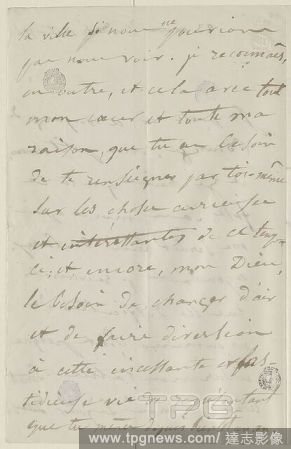 la ville si nous ne pouvions
que nous voir. je reconnais,
en outre, et cela avec tout
mon cœur et toute ma
raison, que tu as besoin
de te renseigner par toi-même
sur les choses curieuses
et intéressantes de ce temps
ci, et encore, mon Dieu,
le besoin de changer d'air
et de faire diversion
à cette incessante et fas
tidieuse vie
que tu mènes depuis
TPG
www.tpgnews.com / 達志影像